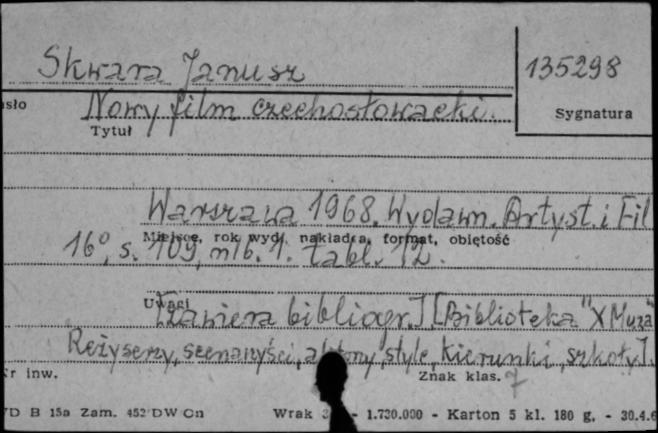 Skwara Janusz
135298
asło
Nowy film czechosłowacki.
Tytuł
Sygnatura
Warszawa 1968. Wydawn. Artyst. i Fil
Miejsce, rok wyd., nakładca, format, objętość
16°, s. 109, nlb. 1. tabl. 12.
Uwagi
[Zawiera bibliogr.] [Biblioteka "X Muza"
Reżyserzy, scenarzyści, aktorzy, style, kierunki, szkoły].
r inw.
Znak klas. 7
D B 15a Zam. 452 DW Cn
Wrak - 1.730.000 - Karton 5 kl. 180 g. - 30.4.6